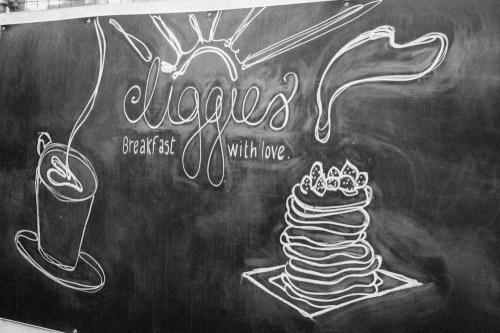 diggies
Breakfast with love.